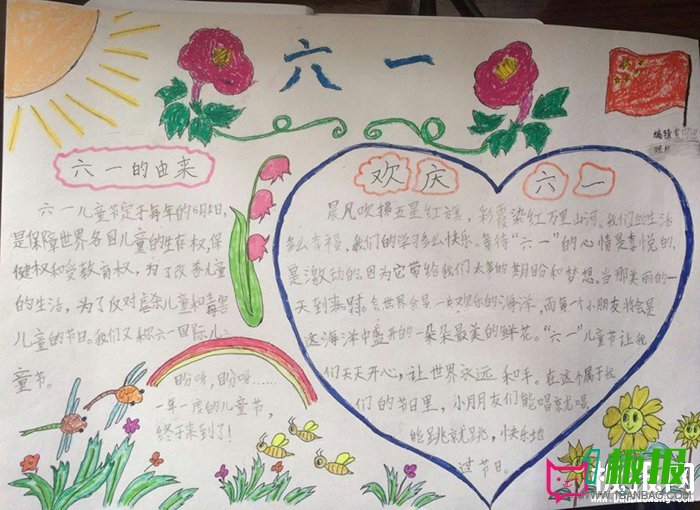 六一
六一的由来
六一儿童节定于每年的6月1日,
是保障世界各国儿童的生存权、保
健权和受教育权,为了改善儿童
的生活,为了反对虐杀儿童和毒害
儿童的节日。我们又称六一国际儿
童节。
盼呀,盼呀……
一年一度的儿童节,
终于来到了!
欢庆六一
晨风吹拂五星红旗,彩霞染红万里山河。我们的生活
多么幸福,我们的学习多么快乐。等待“六一”的心情是喜悦的,
是激动的。因为它带给我们太多的期盼和梦想。当那美丽的一
天到来时,全世界会是一片欢乐的海洋,而每个小朋友就会是
这海洋中盛开的一朵朵最美的鲜花。“六一”儿童节让我
们天天开心,让世界永远和平。在这个属于我
们的节日里,小朋友们能唱就唱
能跳就跳,快乐地
过节日。
编辑
班
板报
WWW.1BANBAO.COM